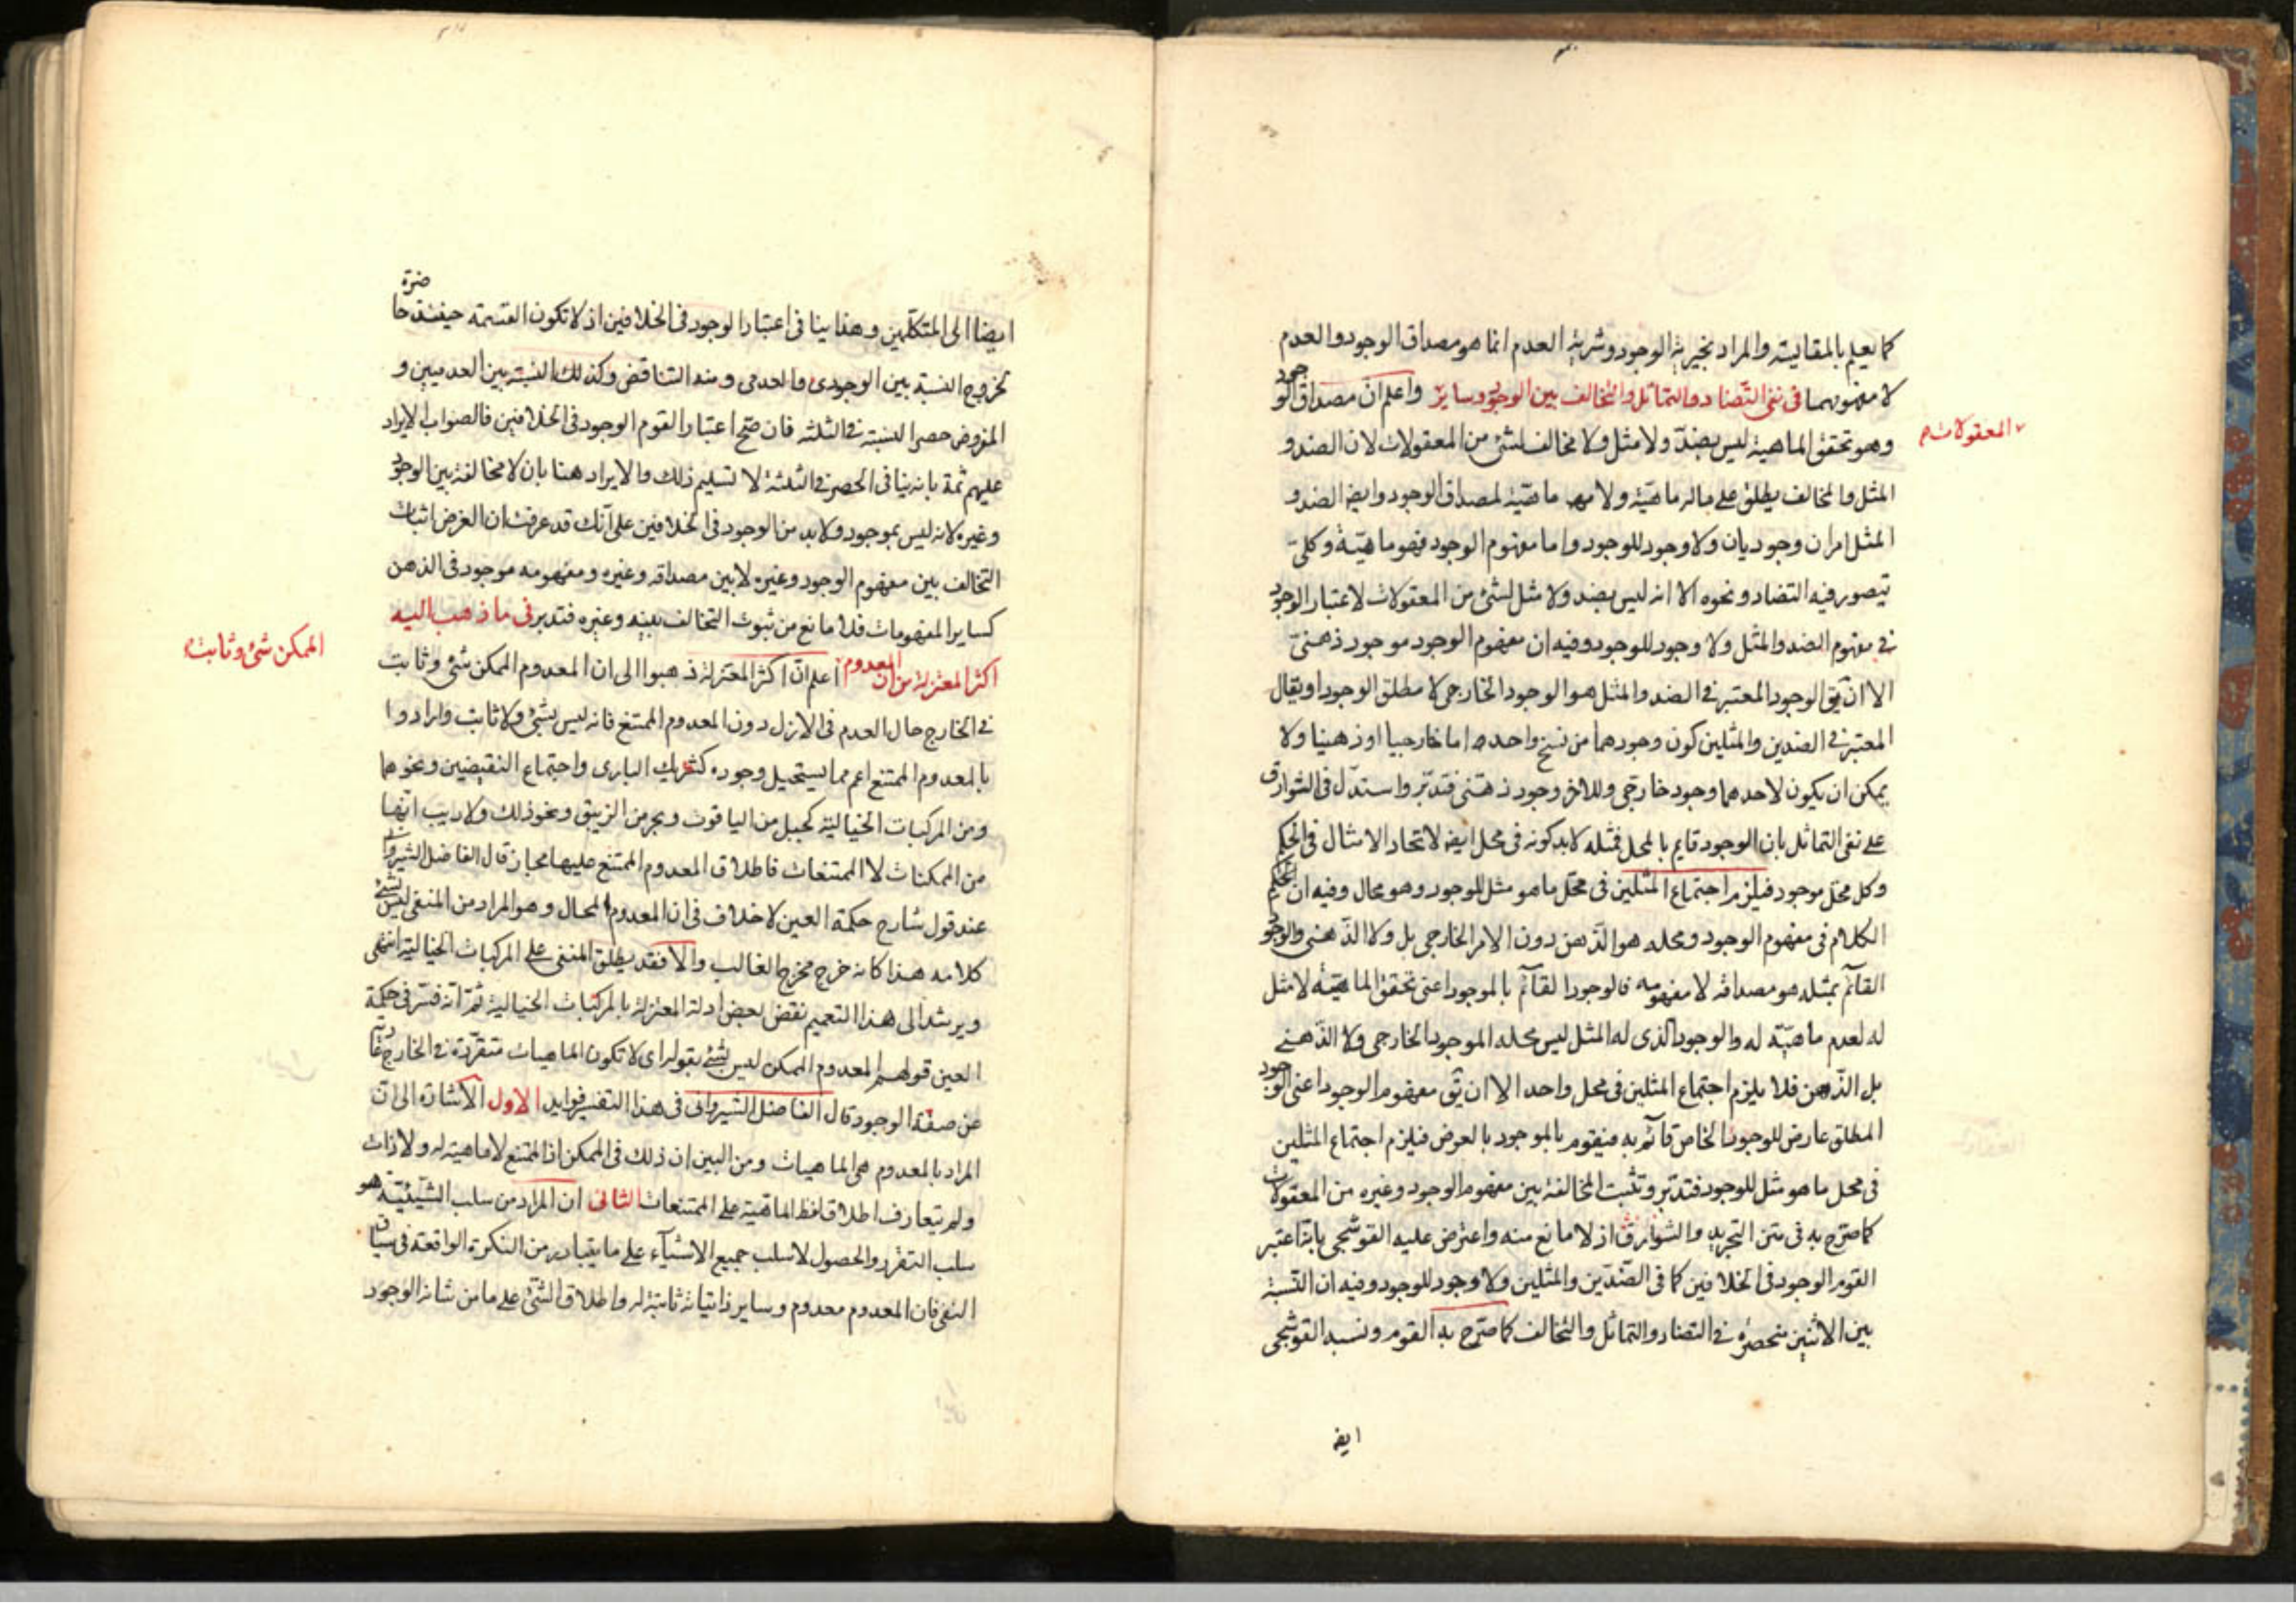 كما يعلم بالمقايسة والمراد بخيرية الوجود وشرية العدم انما هو مصداق الوجود والعدم
لا مفهومهما فى نفى التضاد والتماثل والتخالف بين الوجود وساير المعقولات واعلم ان مصداق الوجود
وهو تحقق الماهية ليس بضدّ ولا مثل ولا مخالف لشئ من المعقولات لان الضد و
المثل والمخالف يطلق على ماله ماهيّة ولا ماهيّة لمصداق الوجود وايضا الضد و
المثل امران وجوديان ولا وجود للوجود واما مفهوم الوجود فهو ماهيّة وكلى
يتصور فيه التضاد ونحوه الا انه ليس بضد ولا مثل لشئ من المعقولات لاعتبار الوجود
فى مفهوم الضد والمثل ولا وجود للوجود وفيه ان مفهوم الوجود موجود ذهنىّ
الا ان يق الوجود المعتبر فى الضد والمثل هو الوجود الخارجى لا مطلق الوجود او يقال
المعتبر فى الضدين والمثلين كون وجودهما من نسخ واحد اما خارجيا او ذهنيا ولا
يمكن ان يكون لاحدهما وجود خارجى وللاخر وجود ذهنى فتدبّر واستدلّ فى الشوارق
على نفى التماثل بان الوجود قايم بالمحل فمثله لابد كونه فى محل ايضا لاتحاد الامثال فى الحكم
وكل محل موجود فيلزم اجتماع المثلين فى محل ما هو مثل للوجود وهو محال وفيه ان الحكم
الكلام فى مفهوم الوجود ومحله هو الذهن دون الامر الخارجى بل ولا الذهنى والوجود
القآئم بمثله هو مصداقه لا مفهومه فالوجود القآئم بالموجود اعنى تحقق الماهيّة لا مثل
له لعدم ماهيّة له والوجود الذى له المثل ليس محله الموجود الخارجى ولا الذهنى
بل الذهن فلا يلزم اجتماع المثلين فى محل واحد الا ان يق مفهوم الوجود اعنى الوجود
المطلق عارض للوجود الخاص قآئم به فيقوم بالموجود بالعرض فيلزم اجتماع المثلين
فى محل ما هو مثل للوجود فتدبّر وتثبت المخالفة بين مفهوم الوجود وغيره من المعقولات
كما صرّح به فى متن التجريد والشوارق اذ لا مانع منه واعترض عليه القوشجى بانه اعتبر
القوم الوجود فى الخلافين كما فى الضدّين والمثلين ولا وجود للوجود وفيه ان النسبة
بين الاثنين منحصرة فى التضاد والتماثل والتخالف كما صرّح به القوم ونسبه القوشجى
ايضا
ايضا الى المتكلّمين وهذا ينافى اعتبار الوجود فى الخلافين اذ لا تكون القسمة حينئذ حاضرة
لخروج النسبة بين الوجودى والعدمى ومنه التناقض وكذلك النسبة بين العدميين و
المفروض حصر النسبة فى الثلثة فان صحّ اعتبار القوم الوجود فى الخلافين فالصواب الايراد
عليهم ثمة بانه ينافى الحصر فى الثلثة لا تسليم ذلك والايراد هنا بان لا مخالفة بين الوجود
وغيره لانه ليس بموجود ولابد من الوجود فى الخلافين على انك قد عرفت ان الغرض اثبات
التخالف بين مفهوم الوجود وغيره لا بين مصداقه وغيره ومفهومه موجود فى الذهن
كساير المفهومات فلا مانع من ثبوت التخالف بينه وغيره فتدبر فى ما ذهب اليه
اكثر المعتزلة من ان المعدوم الممكن شئ وثابت اعلم ان اكثر المعتزلة ذهبوا الى ان المعدوم الممكن شئ وثابت
فى الخارج حال العدم فى الازل دون المعدوم الممتنع فانه ليس بشئ ولا ثابت وارادوا
بالمعدوم الممتنع اعم مما يستحيل وجوده كشريك البارى واجتماع النقيضين ونحوهما
ومن المركبات الخيالية كجبل من الياقوت وبحر من الزيبق ونحو ذلك ولا ريب انها
من الممكنات لا الممتنعات فاطلاق المعدوم الممتنع عليها مجاز قال الفاضل الشيروانى
عند قول شارح حكمة العين لا خلاف فى ان المعدوم المحال وهو المراد من المنفى ليس بشئ
كلامه هذا كانه خرج مخرج الغالب والا فقد يطلق المنفى على المركبات الخيالية انتهى
ويرشد الى هذا التعميم نقض بعض ادلة المعتزلة بالمركبات الخيالية ثمّ انه فسّر فى حكمة
العين قولهم المعدوم الممكن ليس بشئ بقوله اى لا تكون الماهيات متقرّرة فى الخارج
عن صفة الوجود قال الفاضل الشيروانى فى هذا التفسير فوايد الاول الاشارة الى ان
المراد بالمعدوم هى الماهيات ومن البين ان ذلك فى الممكن اذ الممتنع لا ماهية له ولا ذات
ولم يتعارف اطلاق لفظ الماهية على الممتنعات الثانى ان المراد من سلب الشيئيّة هو
سلب التقرر والحصول لا سلب جميع الاشيآء على ما يتبادر من النكرة الواقعة فى سياق
النفى فان المعدوم معدوم وساير ذاتياته ثابتة له واطلاق الشئ على ما من شانه الوجود